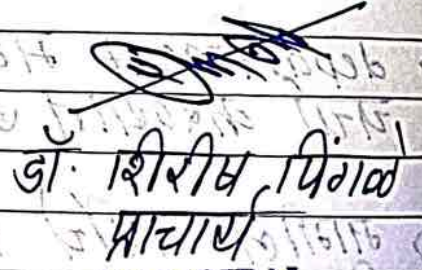 डॉ. शिरीष पिंगळे
प्राचार्य